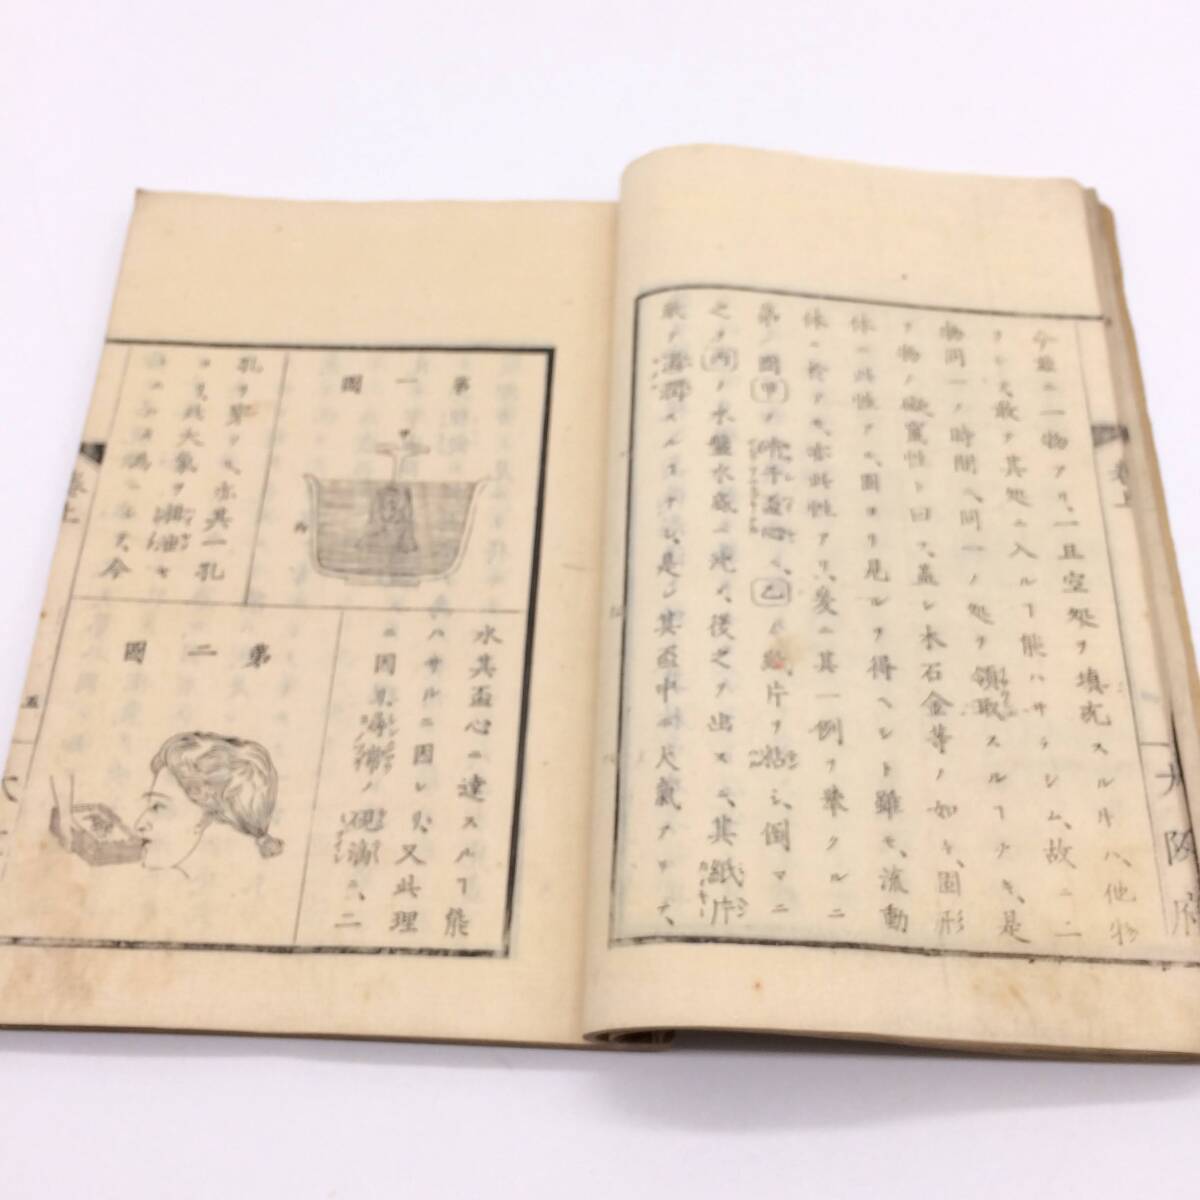 今茲ニ一物アリ、一旦空処ヲ填充スル片ハ、他物
ヲシテ敢テ其処ニ入ルヿ能ハサラシム、故ニ二
物同一ノ時間ヘ同一ノ処ヲ領取スルヿナキ、是
ヲ物ノ礙竄性ト曰フ、蓋シ木石金等ノ如キ、固形
体ニ此性アル、固ヨリ見ルヲ得ヘシト雖モ、流動
体ニ於テモ、亦此性アリ、爰ニ其一例ヲ挙クルニ
第一圖甲ノ 乙ノ紙片ヲ粘シ、倒マニ
之ヲ丙ノ水盤水底ニ 後之ヲ出スニ、其紙片
敢テ 是レ其盃中ニ大氣アリテ、
大阪府
巻上
第一圖
甲
丙
水其盃心ニ達スルヿ能
ハサルニ因レリ、又此理
ニ因リ ノ硯滴ニ、二
孔ヲ穿リ、亦其一孔
ヨリ、其大氣ヲ
今
第二圖
巻上
五